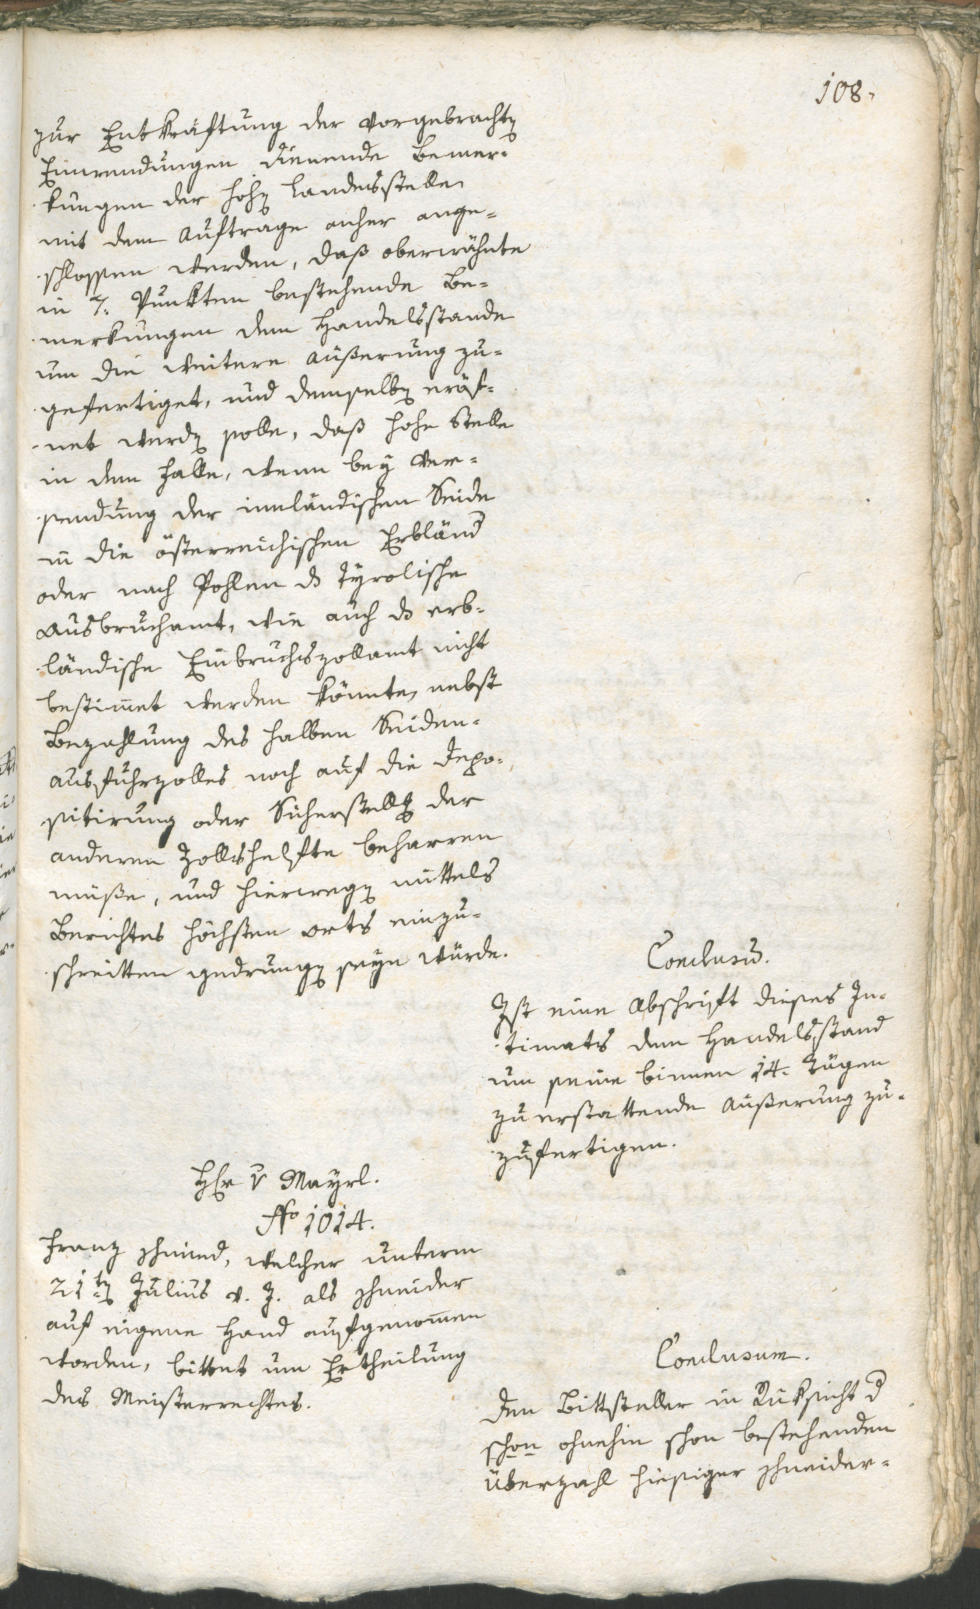 108.
zur Entkräftung der vorgebrachten
Einwendungen dienende Bemer-
kungen der hohen Landesstelle
mit dem Auftrage anher ange-
schlossen werden, daß oberwähnte
in 7. Punkten bestehende Be-
merkungen dem Handelsstande
um die weitere Äußerung zu-
gefertiget, und demselben eröf-
net werden solle, daß hohe Stelle
in dem Falle, wenn bey Ver-
sendung der innländischen Seide
in die österreichischen Erbländ
oder nach Pohlen das Tyrolische
Ausbruchamt, wie auch das erb-
ländische Einbruchszollamt nicht
bestimmet werden könnte, nebst
Bezahlung des halben Seiden-
ausfuhrzolles noch auf die Depo-
sitirung oder Sicherstellung der
anderen Zollshelfte beharren
müße, und hierwegen mittels
Berichtes höchsten Orts einzu-
schreitten gedrungen seyn würde.
Conclusum.
Ist eine Abschrift dieses In-
timats dem Handelsstand
um seine binnen 14. Tägen
zu erstattende Äußerung zu-
zufertigen.
Hr v Mayrl.
No 1014.
Franz Schmid, welcher unterm
21ten Julius v. J. als Schneider
auf eigene Hand aufgenommen
worden, bittet um Ertheilung
des Meisterrechtes.
Conclusum.
Den Bittsteller in Rüksicht d
schon ohnehin schon bestehenden
Überzahl hiesiger Schneider-